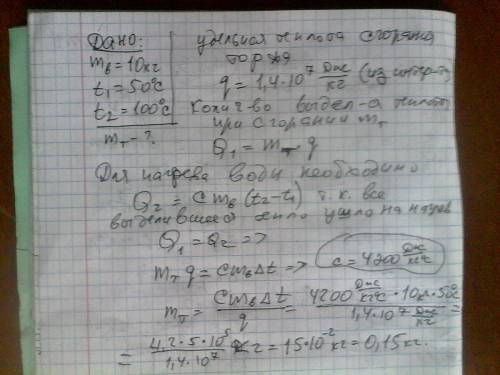 Дано:
m_в = 10 кг
t₁ = 50°C
t₂ = 100°C
m_т - ?
удельная теплота сгорания
торфа
q = 1,4·10⁷ Дж/кг (из интер-та)
Кол-во выдел-я теплоты
при сгорании m_т
Q₁ = m_т q
Для нагрева воды необходимо
Q₂ = c m_в (t₂ - t₁) т.к. все
выделившееся тепло ушло на нагрев
Q₁ = Q₂ =>
m_т q = c m_в Δt => c = 4200 Дж/кг°C
m_т = c m_в Δt / q = 4200 Дж/кг°C · 10кг · 50°C / 1,4·10⁷ Дж/кг =
= 4,2·5·10⁵ / 1,4·10⁷ кг = 15·10⁻² кг = 0,15 кг.